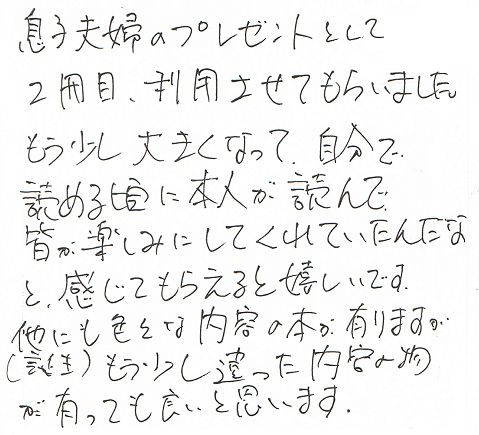 息子夫婦のプレゼントとして
2冊目、利用させてもらいました。
もう少し大きくなって、自分で、
読める頃に本人が読んで、
皆が楽しみにしてくれていたんだな
と、感じてもらえると嬉しいです。
他にも色々な内容の本が有りますが
(誕生)もう少し違った内容の物
が有っても良いと思います.